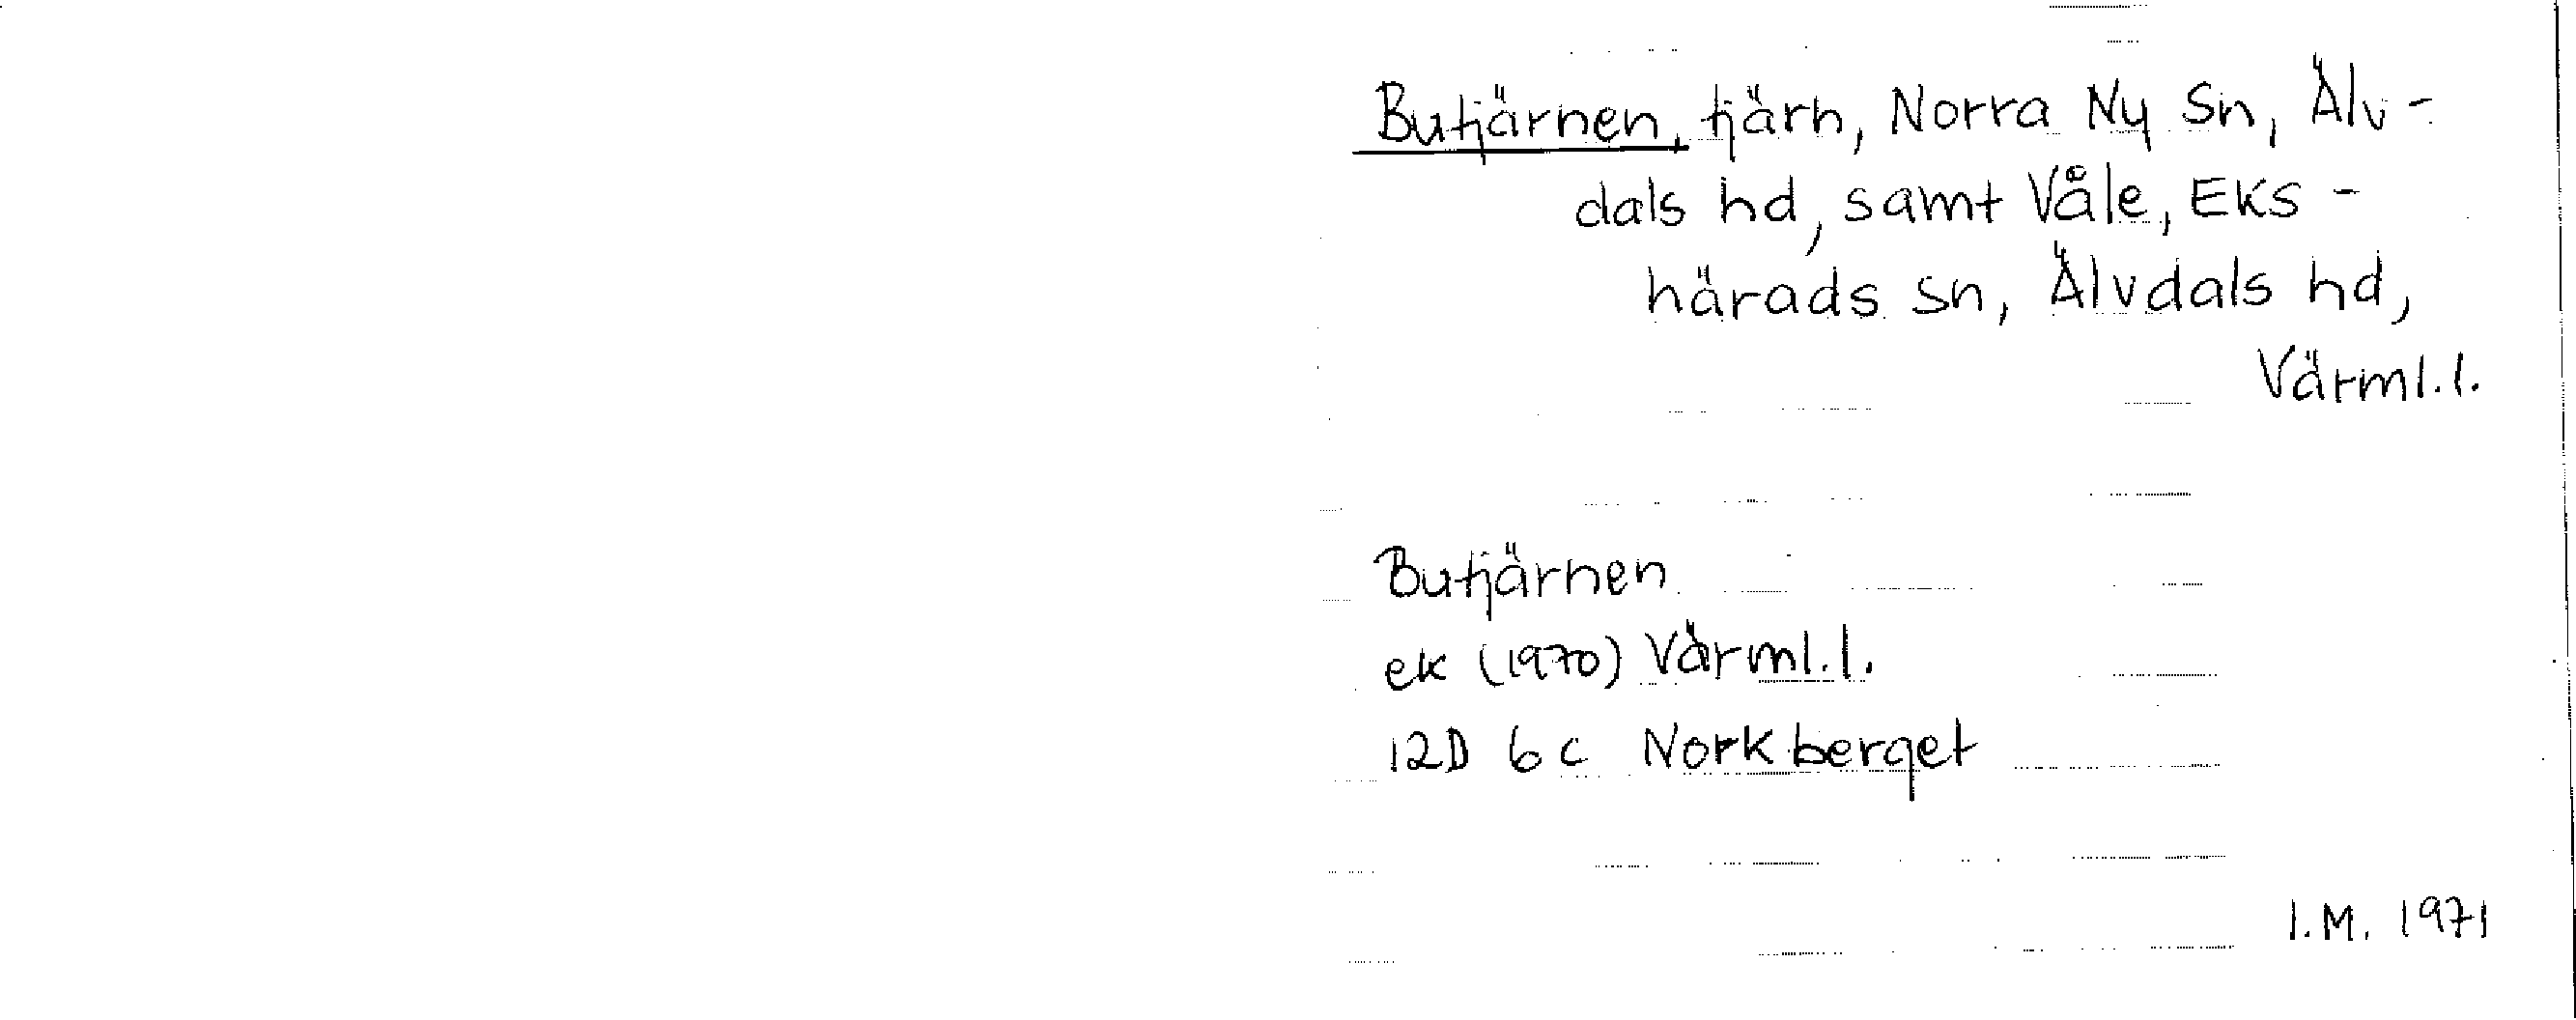 Butjärnen, tjärn, Norra Ny Sn, Älv-
dals hd, samt Våle, Eks-
härads sn, Älvdals hd,
Värml.l.
Butjärnen
ek (1970) Värml.l.
12D 6c Norkberget
I.M. 1971